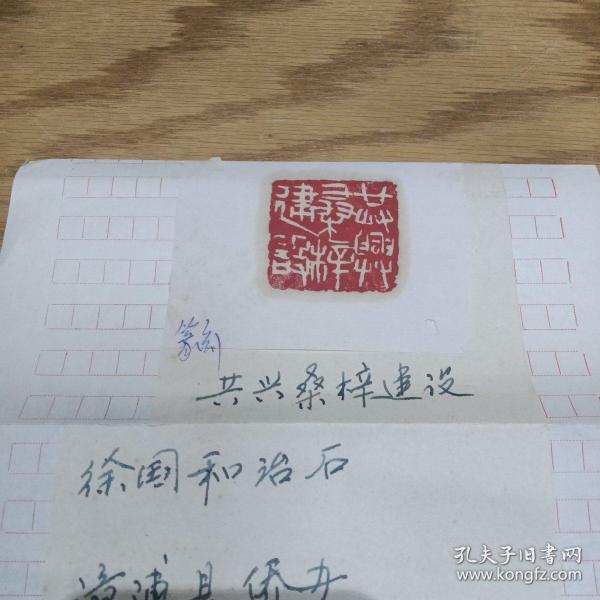 共興桑梓建設
篆刻
共兴桑梓建设
徐国和治石
漳浦县侨办
孔夫子旧书网
www.kongfz.com